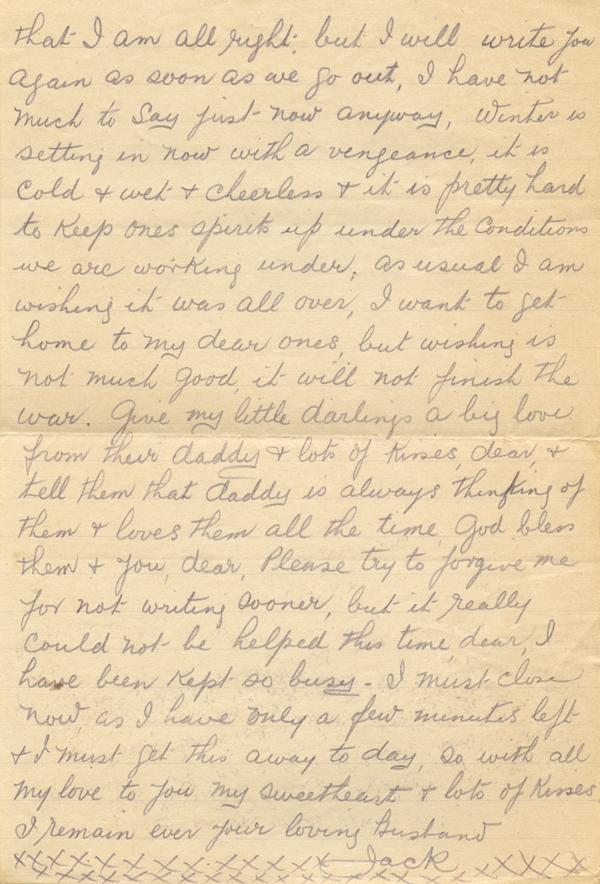 that I am all right, but I will write you
again as soon as we go out, I have not
much to say just now anyway, Winter is
setting in now with a vengeance, it is
cold & wet & cheerless & it is pretty hard
to keep ones spirits up under the conditions
we are working under, as usual I am
wishing it was all over, I want to get
home to my dear ones, but wishing is
not much good, it will not finish the
war. Give my little darlings a big love
from their daddy & lots of kisses, dear, &
tell them that daddy is always thinking of
them & loves them all the time, God bless
them & you, dear, Please try to forgive me
for not writing sooner, but it really
could not be helped this time, dear, I
have been kept so busy - I must close
now, as I have only a few minutes left
& I must get this away to day, so with all
my love to you my sweetheart & lots of kisses
I remain ever your loving Husband
xxxxxxxxxxxxxx Jack xxxxxxx